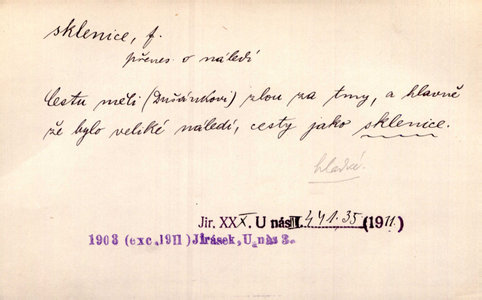 sklenice, f.
přenes o náledí
Cestu měli (Dušánkovi) zlou za tmy, a hlavně
že bylo veliké náledí, cesty jako sklenice.
hladké.
Jir. XXX. U nás III. 441. 35 (1911.)
1903 (exc. 1911) Jirásek, U nás 3.